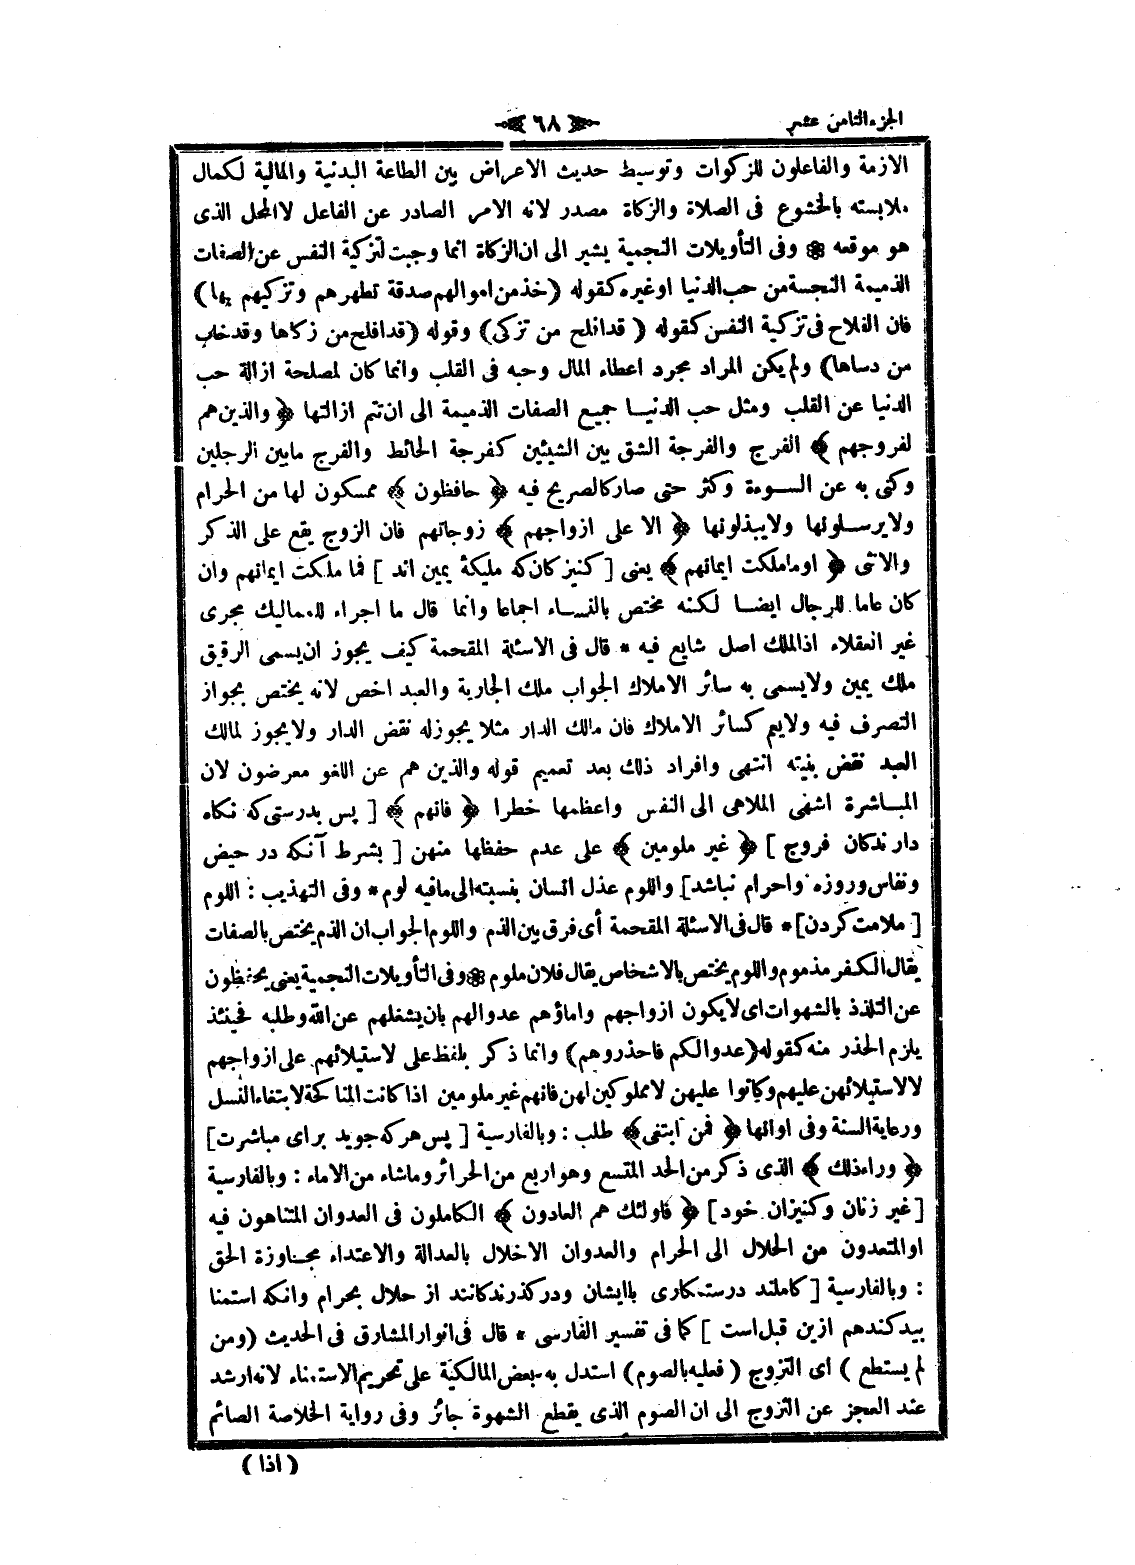 الجزء الثامن عشر
٦٨
الازمة والفاعلون للزكوات وتوسيط حديث الاعراض بين الطاعة البدنية والمالية لكمال
ملابسته بالخشوع فى الصلاة والزكاة مصدر لانه الامر الصادر عن الفاعل لا المحل الذى
هو موقعه ❁ وفى التأويلات النجمية يشير الى ان الزكاة انما وجبت لتزكية النفس عن الصفات
الذميمة النجسة من حب الدنيا او غيره كقوله (خذ من اموالهم صدقة تطهرهم وتزكيهم بها)
فان الفلاح فى تزكية النفس كقوله ( قد افلح من تزكى) وقوله (قد افلح من زكاها وقد خاب
من دساها) ولم يكن المراد مجرد اعطاء المال وحبه فى القلب وانما كان لمصلحة ازالة حب
الدنيا عن القلب ومثل حب الدنيا جميع الصفات الذميمة الى ان تتم ازالتها ﴿ والذين هم
لفروجهم ﴾ الفرج والفرجة الشق بين الشيئين كفرجة الحائط والفرج مابين الرجلين
وكنى به عن السوءة وكثر حتى صار كالصريح فيه ﴿ حافظون ﴾ ممسكون لها من الحرام
ولا يرسلونها ولا يبذلونها ﴿ الا على ازواجهم ﴾ زوجاتهم فان الزوج يقع على الذكر
والانثى ﴿ او ما ملكت ايمانهم ﴾ يعنى [ كنيزكان كه مليكۀ يمين اند ] فما ملكت ايمانهم وان
كان عاما للرجال ايضا لكنه مختص بالنساء اجماعا وانما قال ما اجراء للمماليك مجرى
غير العقلاء اذ الملك اصل شايع فيه * قال فى الاسئلة المقحمة كيف يجوز ان يسمى الرقيق
ملك يمين ولا يسمى به سائر الاملاك الجواب ملك الجارية والعبد اخص لانه يختص بجواز
التصرف فيه ولا يعم كسائر الاملاك فان مالك الدار مثلا يجوز له نقض الدار ولا يجوز لمالك
العبد نقض بنيته انتهى وافراد ذلك بعد تعميم قوله والذين هم عن اللغو معرضون لان
المباشرة اشهى الملاهى الى النفس واعظمها خطرا ﴿ فانهم ﴾ [ پس بدرستى كه نكاه
دارندكان فروج ] ﴿ غير ملومين ﴾ على عدم حفظها منهن [ بشرط آنكه در حيض
ونفاس وروزه واحرام نباشد] واللوم عذل انسان بنسبته الى مافيه لوم * وفى التهذيب : اللوم
[ ملامت كردن] * قال فى الاسئلة المقحمة أى فرق بين الذم واللوم الجواب ان الذم يختص بالصفات
يقال الكفر مذموم واللوم يختص بالاشخاص يقال فلان ملوم ❁ وفى التأويلات النجمية يعنى يحفظون
عن التلذذ بالشهوات اى لا يكون ازواجهم واماؤهم عدوا لهم بان يشغلهم عن الله وطلبه فحينئذ
يلزم الحذر منه كقوله (عدوا لكم فاحذروهم) وانما ذكر بلفظ على لاستيلائهم على ازواجهم
لا لاستيلائهن عليهم وكانوا عليهن لا مملوكين لهن فانهم غير ملومين اذا كانت المناكحة لابتغاء النسل
ورعاية السنة وفى اوانها ﴿ فمن ابتغى ﴾ طلب : وبالفارسية [ پس هر كه جويد براى مباشرت]
﴿ وراء ذلك ﴾ الذى ذكر من الحد المتسع وهو اربع من الحرائر وماشاء من الاماء : وبالفارسية
[ غير زنان وكنيزان خود ] ﴿ فاولئك هم العادون ﴾ الكاملون فى العدوان المتناهون فيه
او المتعدون من الحلال الى الحرام والعدوان الاخلال بالعدالة والاعتداء مجاوزة الحق
: وبالفارسية [ كاملند درستمكارى باايشان ودركذرندكانند از حلال بحرام وانكه استمنا
بيد كندهم ازين قبل است ] كما فى تفسير الفارسى * قال فى انوار المشارق فى الحديث (ومن
لم يستطع ) اى التزوج ( فعليه بالصوم) استدل به بعض المالكية على تحريم الاستمناء لانه ارشد
عند العجز عن التزوج الى ان الصوم الذى يقطع الشهوة جائز وفى رواية الخلاصة الصائم
( اذا )